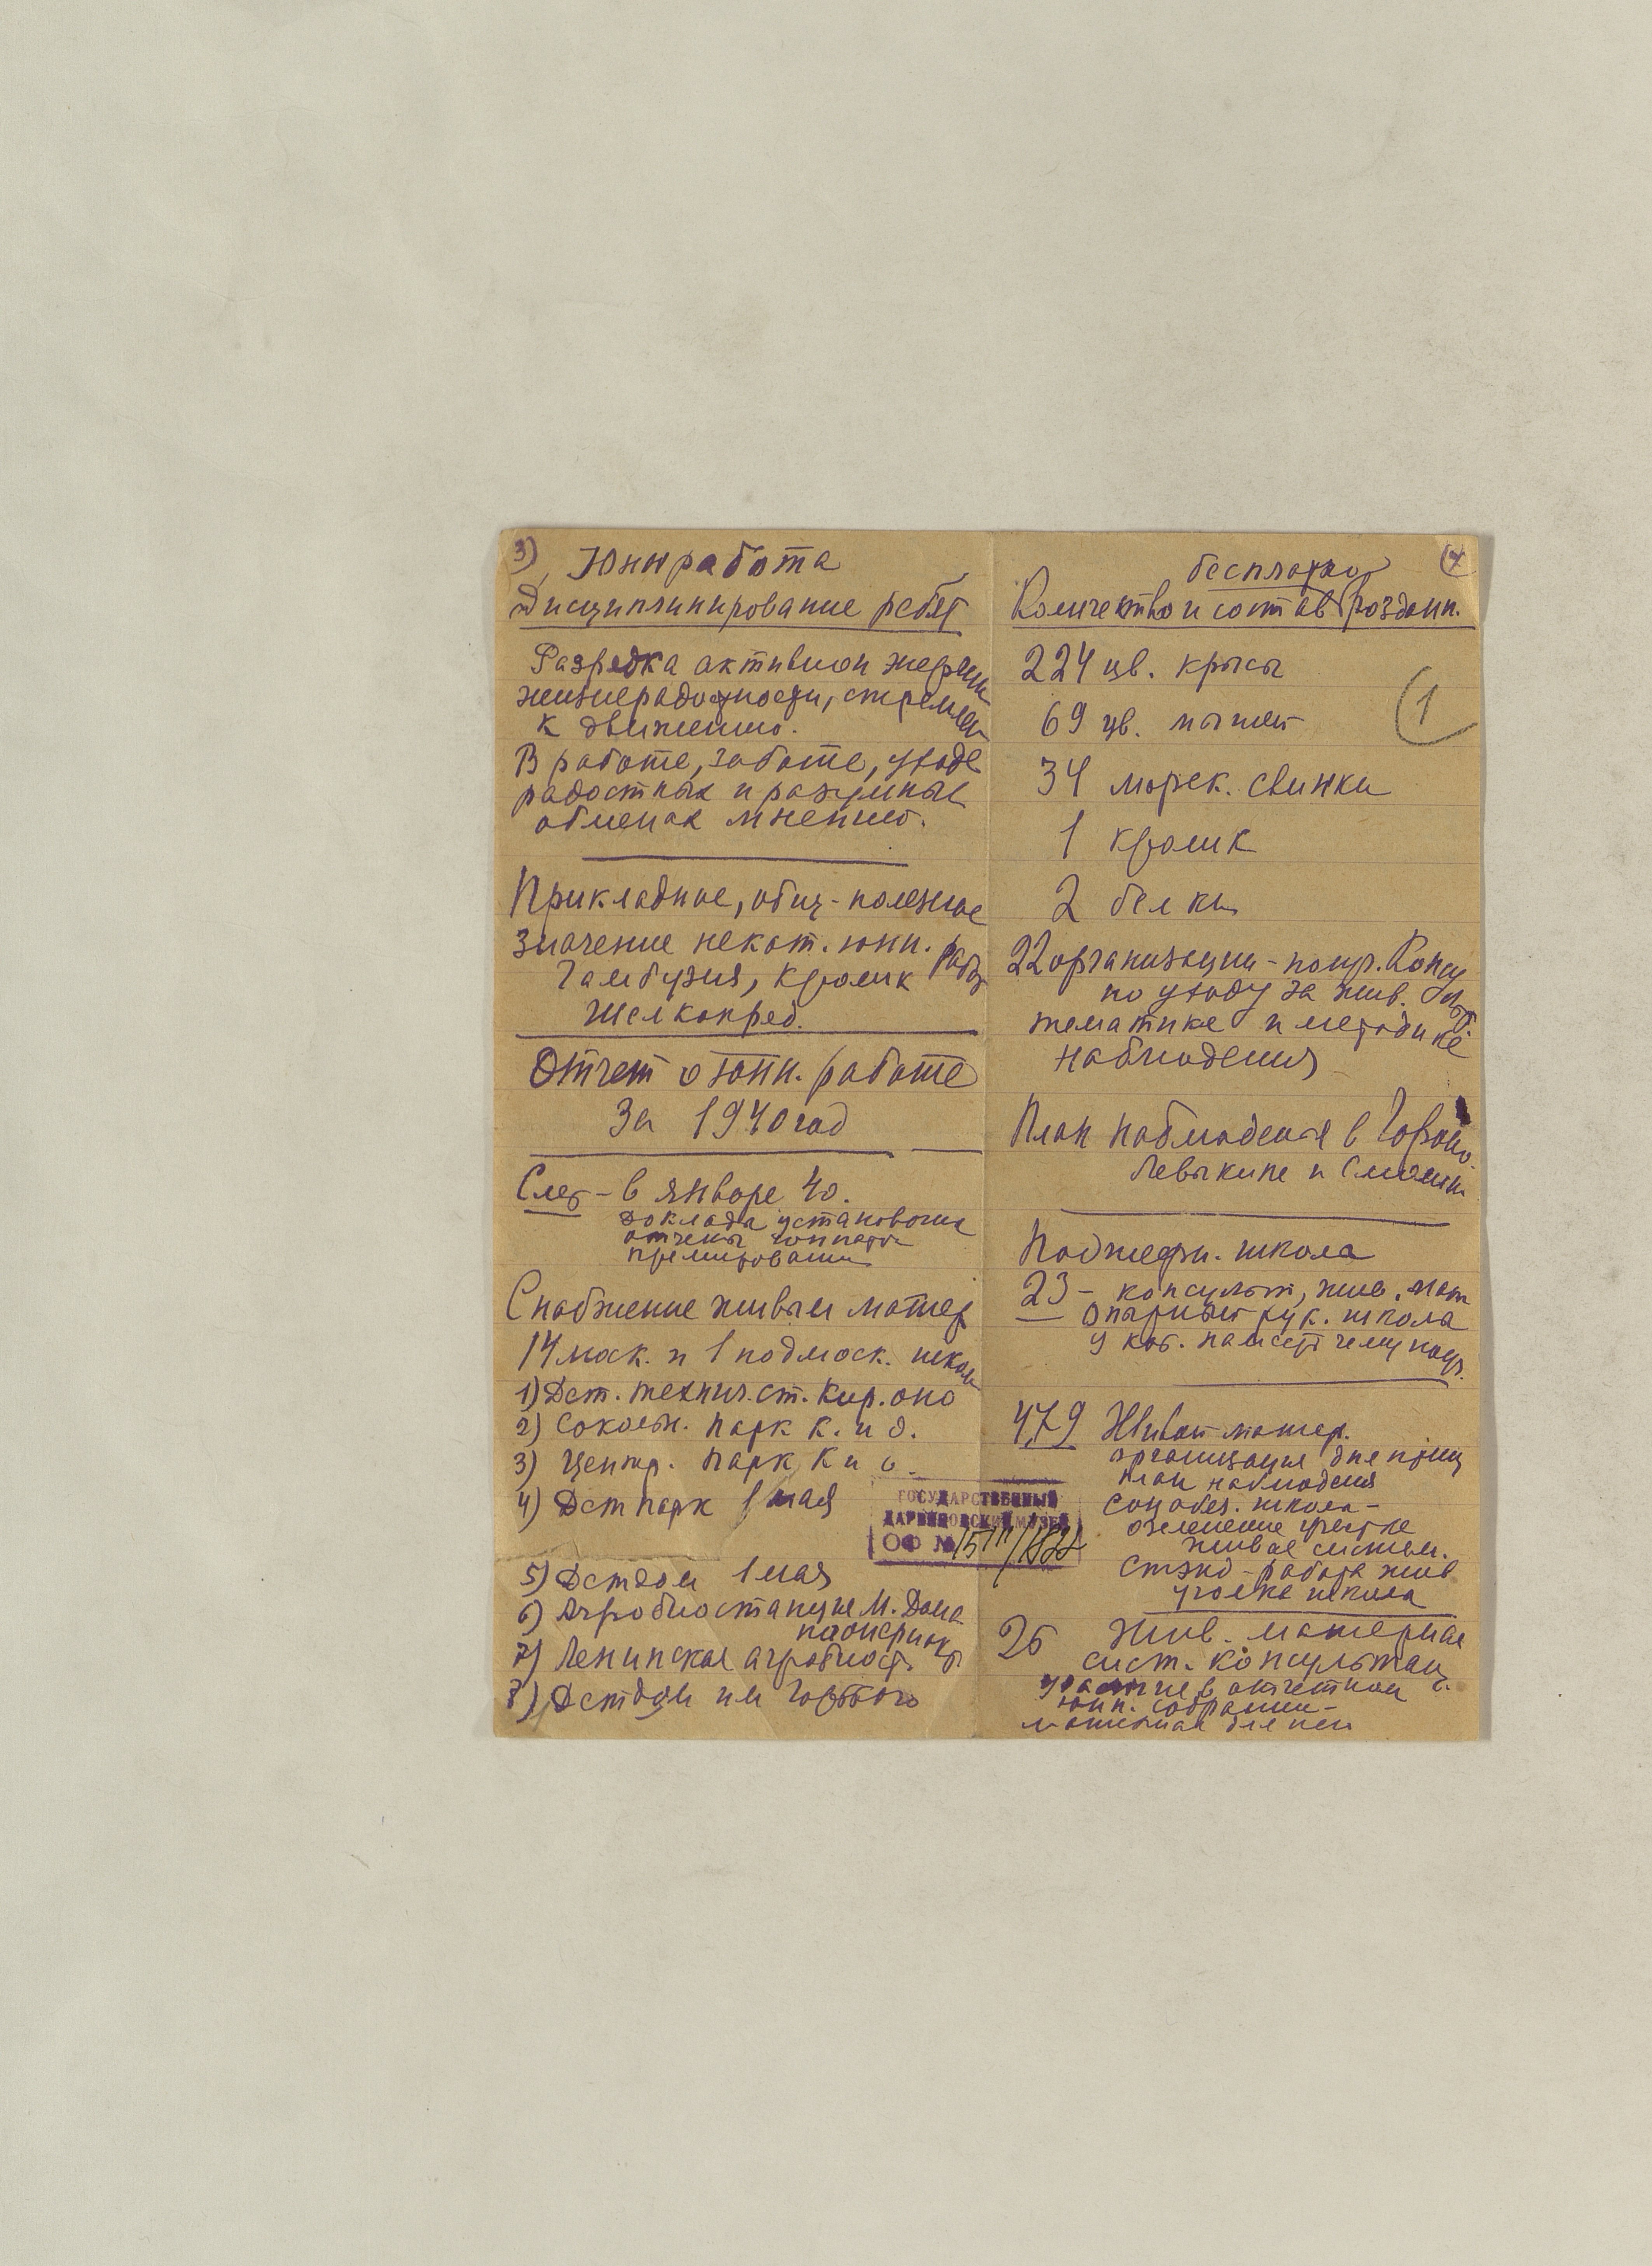 3) Юннработа
Дисциплинирование ребят
Разрядка активной энергии
жизнерадостности, стремлен
к движению.
В работе, заботе, уходе
радостных и разумных
обменах мнению.
Прикладное, общ-полезное
значение некот. юнн. раб
Гамбузия, кролик
Шелкопряд.
Отчет о юнн. работе
За 1940 год
Слет - в январе 40.
доклада установочн
отчеты юннатов
премировании
Снабжение живым матер
14 моск. и 1 подмоск. школ
1) Дет. технич. ст. Кир. оно
2) Сокольн. парк К. и О.
3) Центр. парк К и О.
4) Дет парк 1 мая
5) Детдом 1 мая
6) Агробиостанция М. Дома
пионеров
7) Ленинская агробиост.
8) Детдом им Горького
4
бесплатно
Количество и состав розданн.
1
224 цв. крысы
69 цв. мышей
34 морск. свинки
1 кролик
2 белки
22 организации - получ. Консульт.
по уходу за жив.
тематике и методике
наблюдения
План наблюдения в
Левыкине и
Подшефн. школа
23 - консульт, жив. мат
рук. школа
у каб.
479 Живой матер.
организация дня птиц
план наблюдения
школа -
озеленение участка
живая систем.
стэнд - работа жив
уголка школа
26 Жив. материал
сист. консультац.
участие в отчетном
юнн. собрании -
материал для них
ГОСУДАРСТВЕННЫЙ
ДАРВИНОВСКИЙ МУЗЕЙ
ОФ №